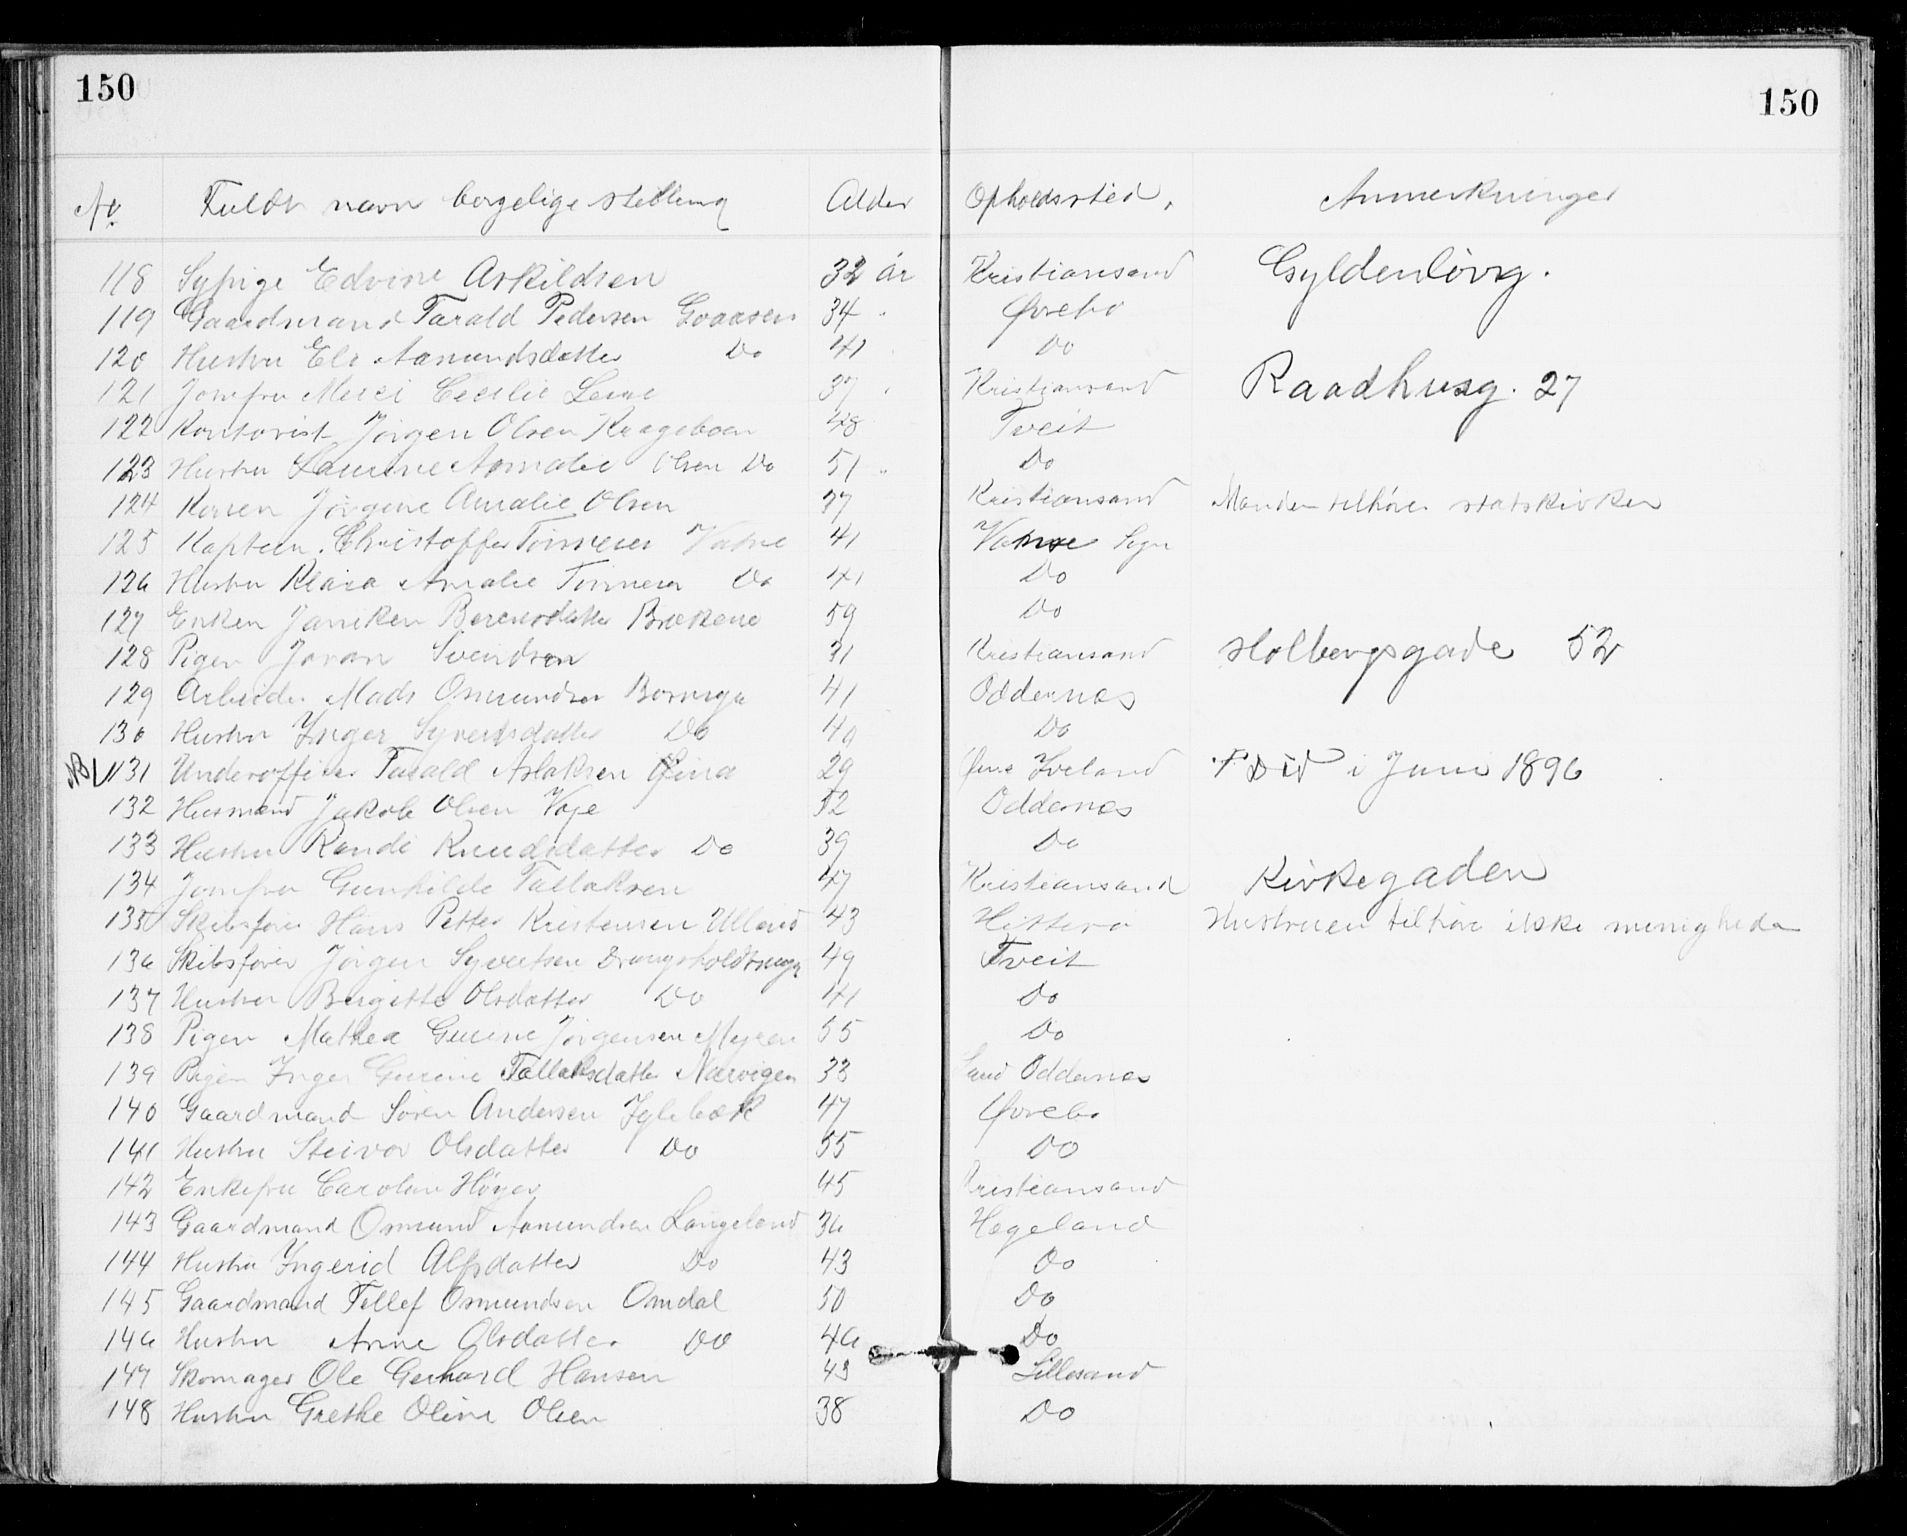 150 150
No Fuldt navn borgelige stelling Alder Opholdssted. Anmerkninger
118 Sypige Edvine Askildsen 32 år Kristiansand Gyldenlövsg.
119 Gaardmand Tarald Pedersen Goaasen 34 Øvrebö
120 Hustru Eli Aamundsdatter Do 41 Do
121 Jomfru Merci Cecilie 37 Kristiansand Raadhusg. 27
122 Kontorist Jörgen Olsen Krageboen 48 Tveit
123 Hustru Laurine Amalie Olsen Do 51 Do
124 Konen Jörgine Amalie Olsen 37 Kristiansand Manden tilhörer statskirken
125 Kaptein Christoffer Tönnesen Vatne 41 Vatne Sogn
126 Hustru Klara Amalie Tönnesen Do 41 Do
127 Enken Janiken Berentsdatter Brækene 59 Do
128 Pigen Joran Svendsen 31 Kristiansand Holbergsgade 52
129 Arbeider Mads Osmundsen 41 Oddernes
130 Hustru Inger Syvertsdatter Do 49 Do
NB 131 Underofficer Tarald Aslaksen Öina 29 Iveland Död i Juni 1896
132 Husmand Jakob Olsen Voje 52 Oddernes
133 Hustru Randi Knudsdatter Do 39 Do
134 Jomfru Gunhilde Tallaksen 47 Kristiansand Kirkegaden
135 Skibsförer Hans Petter Kristensen 43 Hitterö Hustruen tilhöre ikke menigheden
136 Skibsförer Jörgen Syvertsen Drangsholdtsmyr 49 Tveit
137 Hustru Bergitte Olsdatter Do 41 Do
138 Pigen Mathea Gurine Jörgensen Myren 55 Do
139 Pigen Inger Gurine Tallaksdatter Narvigen 33 Oddernes
140 Gaardmand Sören Andersen Iglebæk 47 Øvrebö
141 Hustru Steivor Olsdatter Do 55 Do
142 Enkefru Caroline Höyer 45 Kristiansand
143 Gaardmand Osmund Aamundsen Langeland 36 Hægeland
144 Hustru Yngerid Alfsdatter Do 43 Do
145 Gaardmand Tellef Osmundsen Omdal 50 Do
146 Hustru Anne Olsdatter Do 46 Do
147 Skomager Ole Gerhard Hansen 43 Lillesand
148 Hustru Grethe Oline Olsen 38 Do